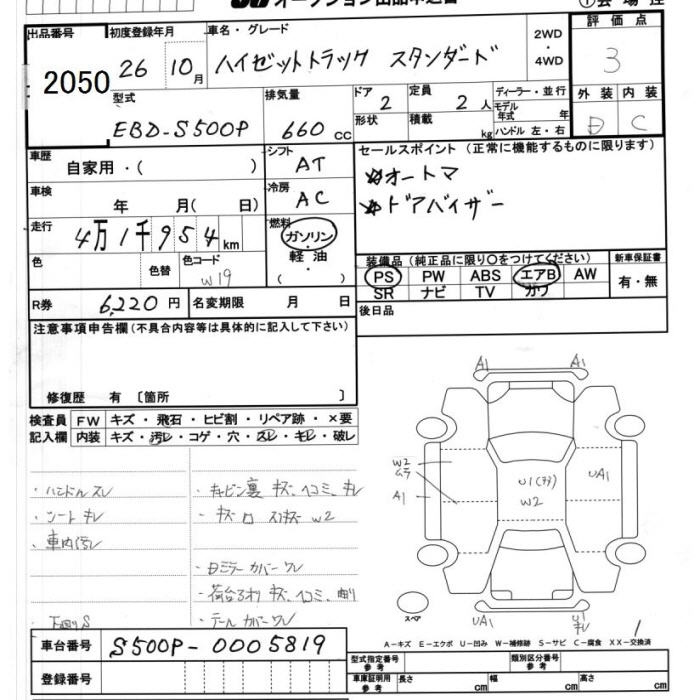 オークション出品申込書
出品番号 2050
初度登録年月 26 10月
車名・グレード ハイゼットトラック スタンダード
2WD ・ 4WD
評価点 3
外装 D 内装 C
型式 EBD-S500P
排気量 660 cc
ドア 2 形状
定員 2 人 積載 kg
ディーラー・並行
モデル年式 年
ハンドル 左・右
車歴 自家用・( )
シフト AT
セールスポイント (正常に機能するものに限ります)
☆オートマ
☆ドアバイザー
車検 年 月( 日)
冷房 AC
走行 4万1千954km
燃料 ガソリン・軽油・( )
色 色替 色コード W19
装備品 (純正品に限り○をつけてください)
PS PW ABS エアB AW
SR ナビ TV カワ
新車保証書 有・無
R券 6,220円 名変期限 月 日
後日品
注意事項申告欄(不具合内容等は具体的に記入して下さい)
修復歴 有 〔箇所 〕
検査員記入欄 FW キズ・飛石・ヒビ割・リペア跡・×要
内装 キズ・汚レ・コゲ・穴・スレ・キレ・破レ
・ハンドルスレ
・シートキレ
・車内汚レ
下廻りS
・キャビン裏 キズ、ヘコミ、キレ
・ミラーカバーワレ
・荷台 キズ、ヘコミ、曲り
・テールカバーワレ
A1 A1
W2 ムラ
A1
U1
W2
UA1
スペア
UA1
U1 キレ
A-キズ E-エクボ U-凹み W-補修跡 S-サビ C-腐食 XX-交換済
車台番号 S500P-0005819
登録番号
型式指定番号 参考 類別区分番号 参考
車庫証明用 参考 長さ cm 幅 cm 高さ cm